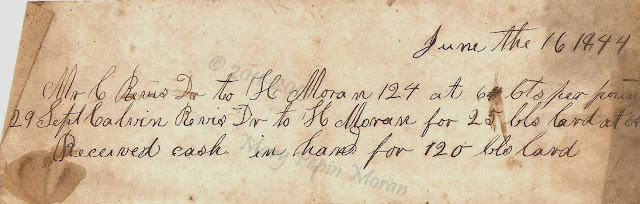 June the 16 1844
Mr C Revis Dr to H Moran 124 at 6 cts per poun
29 Sept Calvin Revis Dr to H Moran for 25 lbs lard at 6
Received cash in hand for 120 lbs lard
Moran